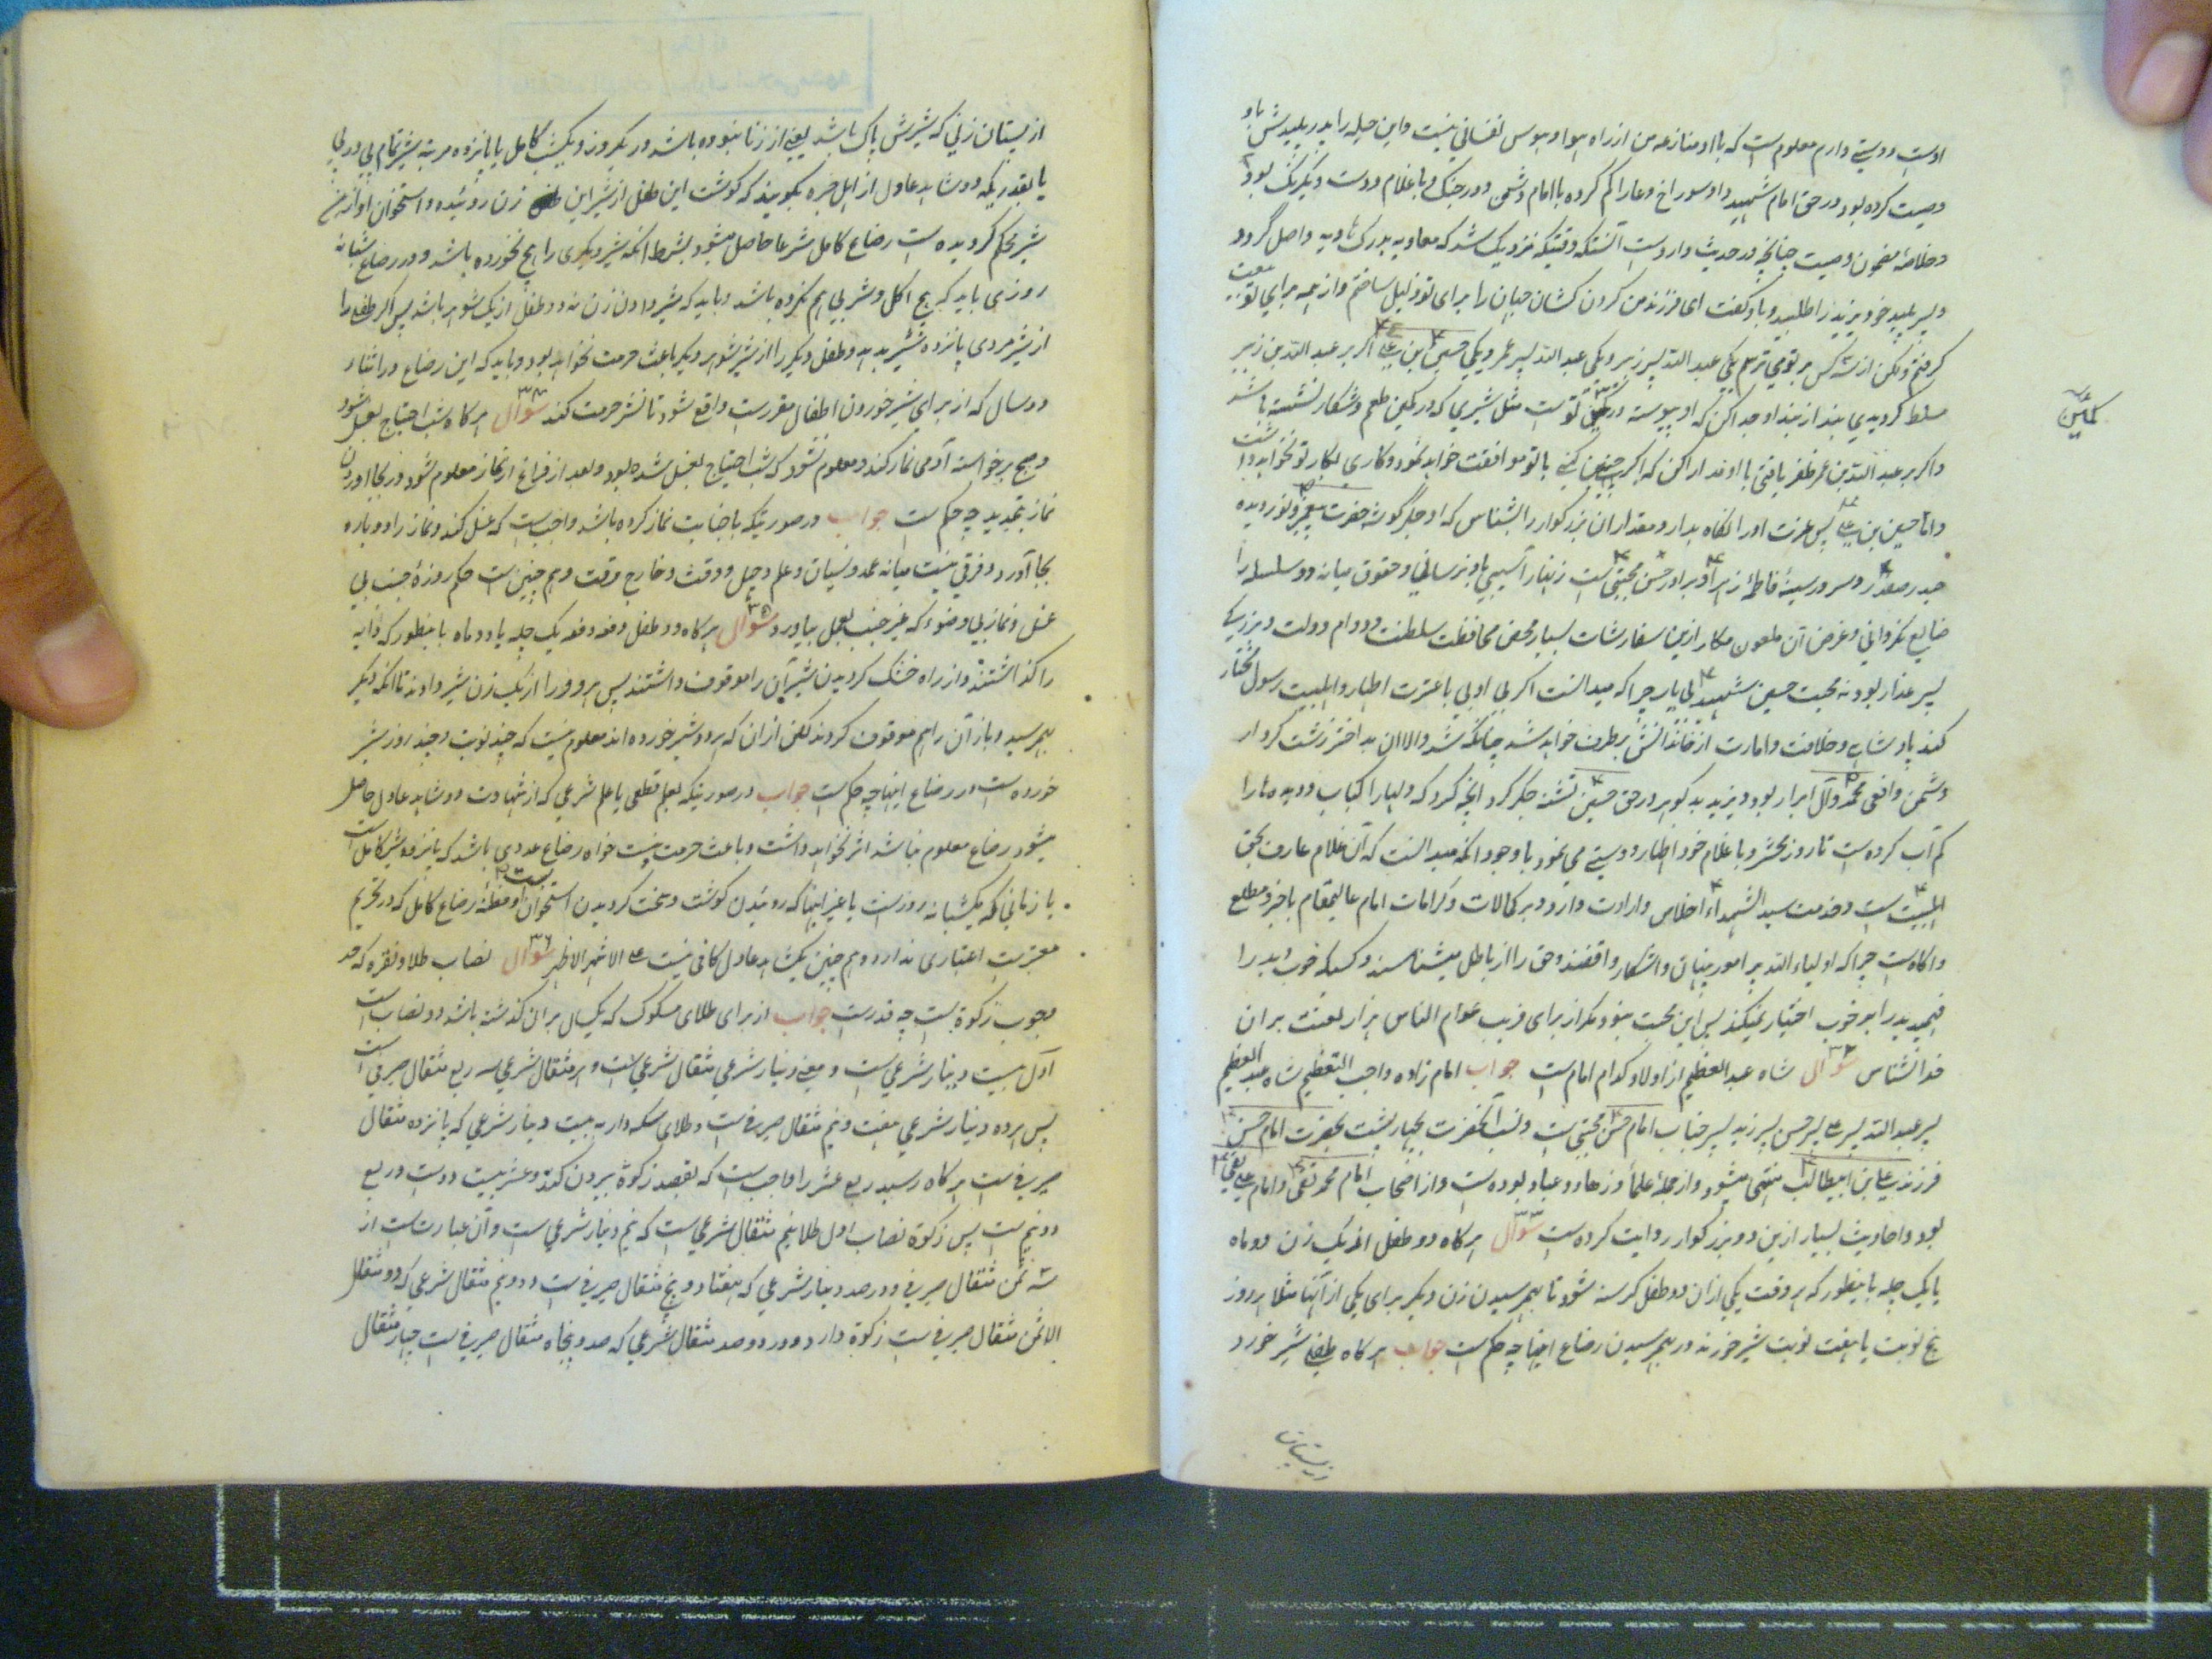 اوست دوستی دارم معلوم است که با او منازعه من از راه هوا و هوس نفسانی نیست و این حیله را پدر پلیدش باو
وصیت کرده بود در حق امام شهید و او سوراخ دعا را گم کرده با امام دشمن و در جنگ و با غلام دوست و یکرنگ بود
و خلاصهٔ مضمون وصیت چنانچه در حدیث وارد است آنستکه وقتیکه نزدیک شد که معاویه بدرک هاویه واصل گردد
و پسر پلید خود یزید را طلبید و باو گفت ای فرزند من گردن کشان جهان را برای تو ذلیل ساختم و از همه برای تو بیعت
گرفتم ولکن از سه کس بر تو می ترسم یکی عبد الله پسر زبیر و یکی عبد الله پسر عمر و یکی حسین ابن علی اگر بر عبد الله بن زبیر
مسلط گردیدی بند از بند او جدا کن که او پیوسته در کمین تو است مثل شیری که در کمین طعمه و شکار نشسته باشد
کمین
و اگر بر عبد الله بن عمر ظفر یافتی با او مدارا کن که اگر چنین کنی با تو موافقت خواهد نمود و کاری بکار تو نخواهد داشت
و اما حسین بن علی پس عزت او را نگاه بدار و مقدار آن بزرگوار را بشناس که او جگر گوشه حضرت پیغمبر و نور دیده
حیدر صفدر و سرور سینهٔ فاطمه زهرا و برادر حسن مجتبی است زینهار آسیبی باو نرسانی و حقوق میانه دو سلسله را
ضایع نگردانی و غرض آن ملعون مکار ازین سفارشات بسیار محض محافظت سلطنت و دوام دولت و بزرگی
پسر غدار بود نه محبت حسین شهید بی یار چرا که میدانست اگر بی ادبی با عترت اطهار و اهلبیت رسول مختار
کند پادشاهی و خلافت و امارت از خاندانش برطرف خواهد شد چنانکه شد و الا آن بد اختر زشت کردار
دشمن واقعی محمد و آل ابرار بود و یزید بد گوهر در حق حسین تشنه جگر کرد آنچه کرد که دلها را کباب و دیده ها را
کم آب کرده است تا روز محشر و با غلام خود اظهار دوستی می نمود با وجود انکه میدانست که آن غلام عارف بحق
اهلبیت است و خدمت سید الشهداء اخلاص و ارادت دارد و بر کمالات و کرامات امام عالیمقام باخبر و مطلع
و آگاه است چرا که اولیاء الله بر امور پنهان و آشکار واقفند و حق را از باطل میشناسند و کسیکه خوب و بد را
فهمید بد را بر خوب اختیار نمیکند پس این محبت نبود مگر از برای فریب عوام الناس هزار لعنت بر آن
خدا نشناس سوال ۳۲ شاه عبد العظیم از اولاد کدام امام است جواب امام زاده واجب التعظیم شاه عبد العظیم
پسر عبد الله پسر علی پسر حسن پسر زید پسر جناب امام حسن مجتبی است و نسب آنحضرت بچهار پشت بحضرت امام حسن
فرزند علی بن ابیطالب منتهی میشود و از جملهٔ علما و زهاد و عباد بوده است و از اصحاب امام محمد تقی و امام علی نقی
بود و احادیث بسیار ازین دو بزرگوار روایت کرده است سوال ۳۳ هرگاه دو طفل از یک زن دو ماه
یا یک چله باینطور که هر وقت یکی از آن دو طفل گرسنه شود تا بهم رسیدن زن دیگر برای یکی از آنها مثلا هر روز
پنج نوبت یا هفت نوبت شیر خورند در بهم رسیدن رضاع اینها چه حکم است جواب هرگاه طفلی شیر خورد
از پستان
از پستان زنی که شیرش پاک باشد یعنی از زنا نبوده باشد در یکروز و یکشب کامل یا پانزده مرتبه شیر تمام پی در پی
یا بقدریکه دو شاهد عادل از اهل خبره بگویند که گوشت این طفل از شیر این زن روئیده و استخوان او از این
شیر محکم گردیده است رضاع کامل شرعا حاصل میشود بشرط انکه شیر دیگری را هیچ نخورده باشد و در رضاع شبانه
روزی باید که هیچ اکل و شربی هم نکرده باشد و باید که شیر دادن زن به دو طفل از یک شوهر باشد پس اگر طفلی را
از شیر مردی پانزده شیر بدهد و طفل دیگر را از شیر شوهر دیگر باعث حرمت نخواهد بود و باید که این رضاع در اثناء
دو سال که از برای شیر خوردن اطفال مقرر است واقع شود تا نشر حرمت کند سوال ۳۴ هرگاه شب احتیاج بغسل شود
و صبح برخواسته آدمی نماز کند و معلوم نشود که شب احتیاج بغسل شده بود و بعد از فراغ از نماز معلوم شود در بجا اوردن
نماز بتجدید چه حکم است جواب در صورتیکه با جنابت نماز کرده باشد واجبست که غسل کند و نماز را دوباره
بجا آورد و فرقی نیست میانه عمد و نسیان و علم و جهل و وقت و خارج وقت و هم چنین است حکم روزهٔ جنب بی
غسل و نماز بی وضوء که غیر جنب بعمل بیاورد سوال ۳۵ هرگاه دو طفل دفعه دفعه یک چله یا دو ماه باینطور که دایه
را گذاشتند و از راه خشک گردیدن شیر آن را موقوف داشتند پس هر دو را از یک زن شیر دادند تا انکه دیگر
بهم رسید و باز آن را هم موقوف کردند لکن از آن که هر دو شیر خورده اند معلوم نیست که چند نوبت و چند روز شیر
خورده است در رضاع اینها چه حکم است جواب در صورتیکه بعلم قطعی یا علم شرعی که از شهادت دو شاهد عادل حاصل
میشود رضاع معلوم نباشد اثر نخواهد داشت و باعث حرمت نیست خواه رضاع عددی باشد که پانزده شیر کامل است
یا زمانی که یکشبانه روز است یا غیر اینها که روئیدن گوشت و سخت گردیدن استخوان است و مظنهٔ رضاع کامل که در تحریم
معتبر است اعتباری ندارد و هم چنین یکشاهد عادل کافی نیست علی الاشهر الاظهر سوال ۳۶ نصاب طلا و نقره که حد
وجوب زکوة است چه قدر است جواب از برای طلای مسکوک که یکسال بر ان گذشته باشد دو نصاب است
اول بیست دینار شرعی است و معنی دینار شرعی مثقال شرعی است و هر مثقال شرعی سه ربع مثقال صیرفی است
پس هر ده دینار شرعی هفت و نیم مثقال صیرفی است و طلای سکه دار به بیست دینار شرعی که پانزده مثقال
صیرفی است هرگاه رسید ربع عشر را واجب است که بقصد زکوة بیرون کند و عشر بیست دو است و ربع
دو نیم است پس زکوة نصاب اول طلا نیم مثقال شرعی است که نیم دینار شرعی است و آن عبارت است از
سه ثمن مثقال صیرفی و در صد دینار شرعی که هفتاد و پنج مثقال صیرفی است و دو نیم مثقال شرعی که دو مثقال
الا ثمن مثقال صیرفی است زکوة دارد و در دو صد مثقال شرعی که صد و پنجاه مثقال صیرفی است چهار مثقال